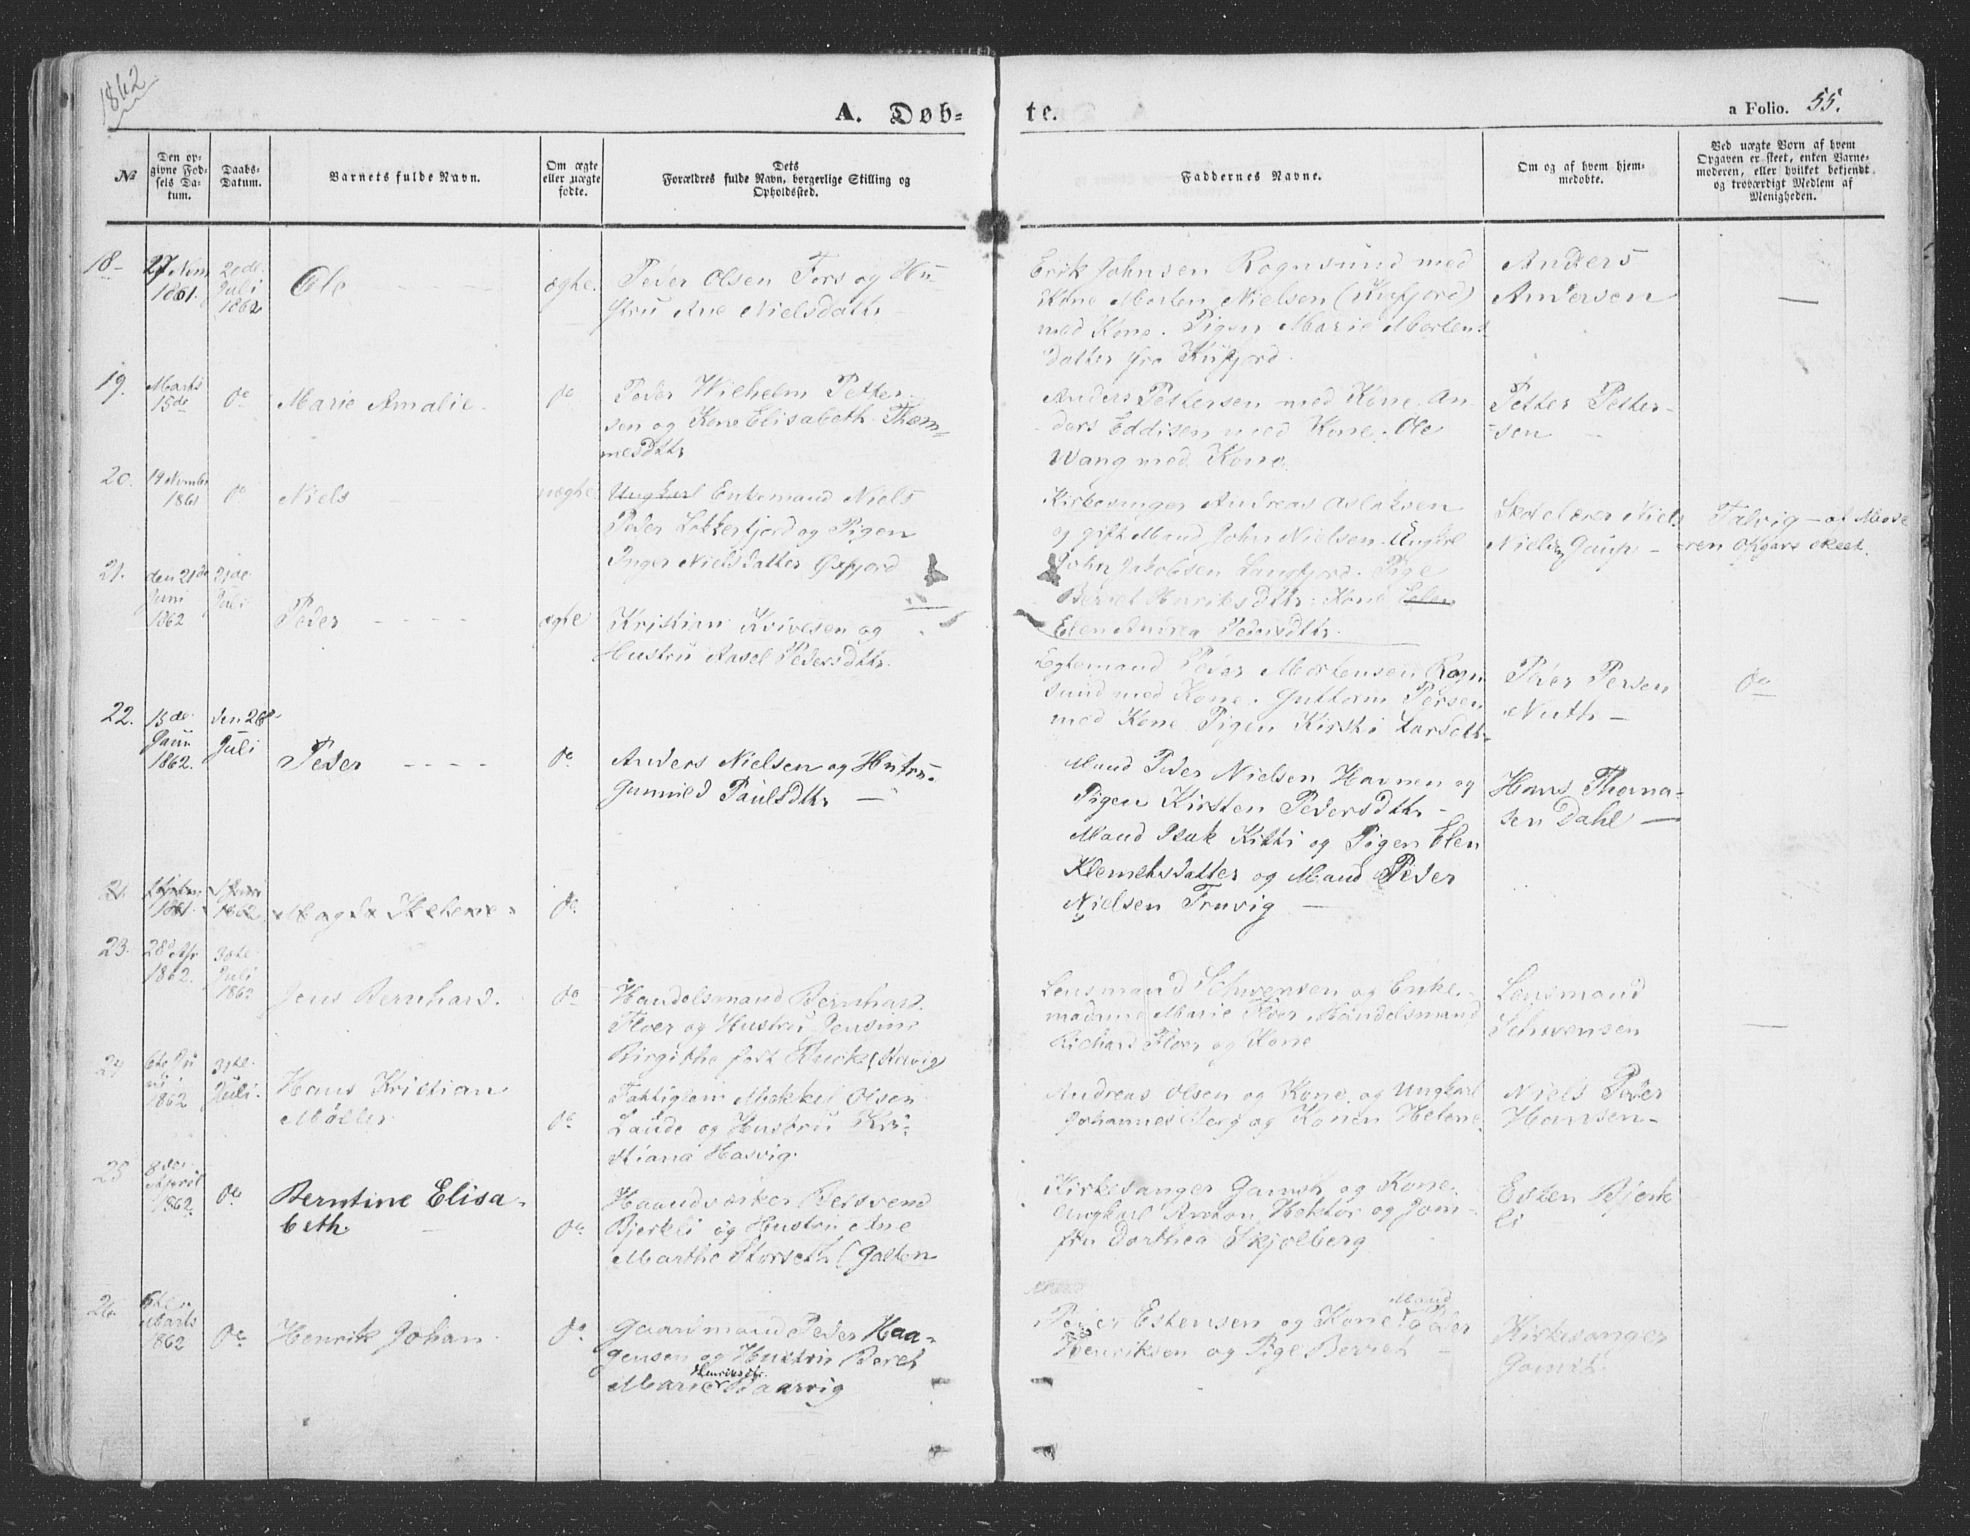 1862
A. Døb-
te.
a Folio. 55.
No
Den op-
givne Fød-
sels Da-
tum.
Daabs-
Datum.
Barnets fulde Navn.
Om ægte
eller uægte
fødte.
Dets
Forældres fulde Navn, borgerlige Stilling og
Opholdssted.
Faddernes Navne.
Om og af hvem hjem-
medøbte.
Ved uægte Børn af hvem
Opgaven er skeet, enten Barne-
moderen, eller hvilket bekjendt
og troværdigt Medlem af
Menigheden.
18
27 Nov
1861.
20de
Juli
1862
Ole
ægte.
Peder Olsen Fors og Hu-
stru Ane Nielsdattr
Erik Johnsen Rognsund med
Kone Morten Nielsen (Kufjord)
med Kone. Pigen Marie Mortens
datter fra Kufjord.
Anders
Andersen
19.
Marts
15de
do
Marie Amalie
do
Peder Wilhelm Petter-
sen og Kone Elisabeth Thom-
mesdttr
Anders Pettersen med Kone. An-
ders Eddisen med Kone. Ole
Wang med Kone
Petter Petter-
sen
20.
14 Novmbr
1861
do
Niels
uægte
Ungkarl Enkemand Niels
Peder Lokkerfjord og Pigen
Inger Nielsdatter Oxfjord
Kirkesanger Andreas Aslaksen
og gift Mand John Nielsen. Ungkrl
John Jakobsen Langfjord. Pige
Berret Henriksdttr. Kone Elen
Elen Pedersdttr.
Skolelærer Niels
Nielsen Gaup
Talvig - af Mode
ren Opgave skeet.
21.
den 21de
Juni
1862
21de
Juli
Peder
ægte
Kristian Kvivesen og
Hustru Aasel Pedersdttr.
Egtemand Peder Mortensen Rogn
sund med Kone. Guttorm Persen
med Kone Pigen Kirsti Larsdttr
Peder Persen
Nuth
do
22.
15de
Juni
1862.
den 26de
Juli
Peder
do
Anders Nielsen og Hustru
Gunnild Paulsdttr
Mand Peder Nielsen Havnen og
Pigen Kirsten Pedersdttr
Mand Isak Kitti og Pigen Elen
Klemetsdatter og Mand Peder
Nielsen Truvig
Hans Thoma-
sen Dahl
21.
1861.
1862
Magda Helene
do
23.
28de Apr
1862.
30te
Juli
1862
Jens Bernhard.
do
Handelsmand Bernhard
Floer og Hustru Jensine
Birgithe født Buck (Kvvig)
Lensmand Schwensen og Enke-
madame Marie Floer, Handelsmand
Richard Floer og Kone
Lensmand
Schwensen
24
6te Ju
ni
1862
31te
Juli.
Hans Kristian
Møller
do
Fattiglem Mikkel Olsen
Laude og Hustru Kri-
stiana Hasvig.
Andreas Olsen og Kone, og Ungkarl
Johannes Berg og Konen Helene.
Niels Peder
Hansen
25
8de
April
1862.
do
Berntine Elisa-
beth.
do
Haandværker
Bjerkli og Hustru Ane
Marthe Storseth (Galten
Kirkesanger Gamst og Kone.
Ungkarl Anton Hektor og Jom-
fru Dorthea Skjølberg
Esten Bjerk
li
26
5te
Marts
1862
do
Henrik Johan
do
Gaardmand Peder Haa-
gensen og Hustru Beret
Marie Henriksdtr. Kaarvig
Mand
Peder Estensen og Kone Mand Peder
Henriksen og Pige Berret
Kirkesanger
Gamst